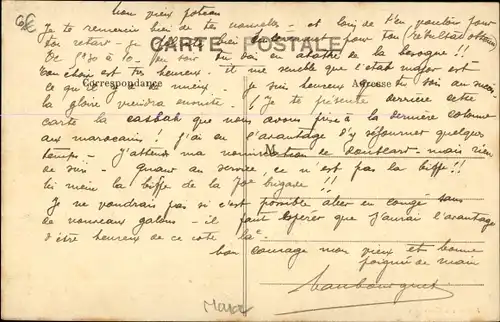 6€
mon vieux poteau
Je te remercie bien de tes nouvelles - et loin de t'en vouloir pour
ton retard - je bien pour ton résultat obtenu
CARTE POSTALE
De 5h30 à 10h du soir tu dois en abattre de la besogne !!
Ton choix est très heureux. il me semble que l'état major est
ce qu'il y a de mieux. je suis heureux
Correspondance
Adresse
la gloire viendra ensuite. Je te présente derrière cette
carte la casbah que nous avons prise à la dernière colonne
aux marocains ! j'ai eu l'avantage d'y séjourner quelque
M
temps - J'attends ma nomination de - mais rien
de sûr. Quant au service, ce n'est pas la biffe !!
ni même la biffe de la 70e brigade !!
Je ne voudrais pas si c'est possible aller en congé sans
de nouveaux galons - il faut espérer que j'aurai l'avantage
d'être heureux de ce côté là
bon courage mon vieux et bonne
poignée de main
Maroc